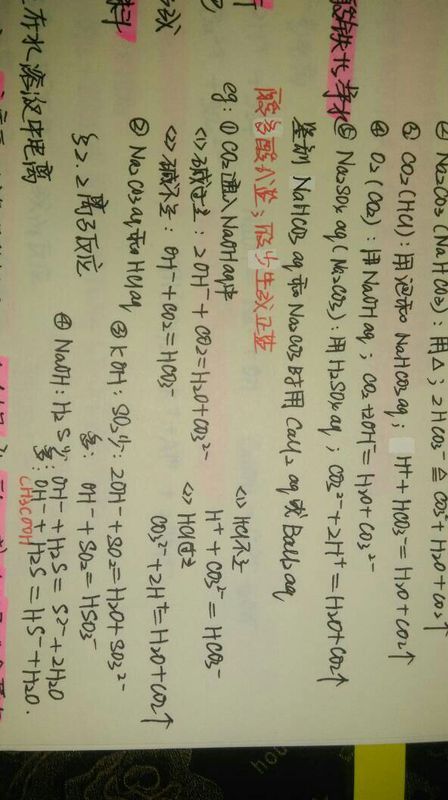 ② Na2CO3(NaHCO3): 用△; 2HCO3⁻ ≜ CO3²⁻+H2O+CO2↑
③ CO2(HCl): 用饱和NaHCO3aq; H⁺+HCO3⁻=H2O+CO2↑
④ O2(CO2): 用NaOHaq; CO2+2OH⁻=H2O+CO3²⁻
⑤ Na2SO4aq(Na2CO3): 用H2SO4aq; CO3²⁻+2H⁺=H2O+CO2↑
鉴别NaHCO3aq和Na2CO3时用CaCl2aq或BaCl2aq
酸多酸式盐; 酸少生成正盐
eg: ① CO2通入NaOHaq中
<1> 碱过量: 2OH⁻+CO2=H2O+CO3²⁻
<2> 碱不足: OH⁻+CO2=HCO3⁻
② Na2CO3aq和HClaq
<1> HCl不足
H⁺+CO3²⁻=HCO3⁻
<2> HCl过量
CO3²⁻+2H⁺=H2O+CO2↑
③ KOH: SO2少: 2OH⁻+SO2=H2O+SO3²⁻
多: OH⁻+SO2=HSO3⁻
④ NaOH: H2S少: OH⁻+H2S=S²⁻+2H2O
多: OH⁻+H2S=HS⁻+H2O.
CH3COOH
§2.2 离子反应
在水溶液中电离
hou